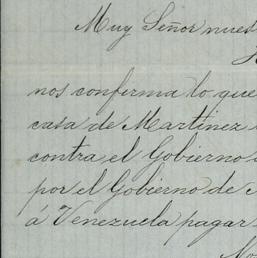 Muy Señor nues
nos confirma lo que
casa de Martinez
contra el Gobierno
por el Gobierno de
á Venezuela pagar